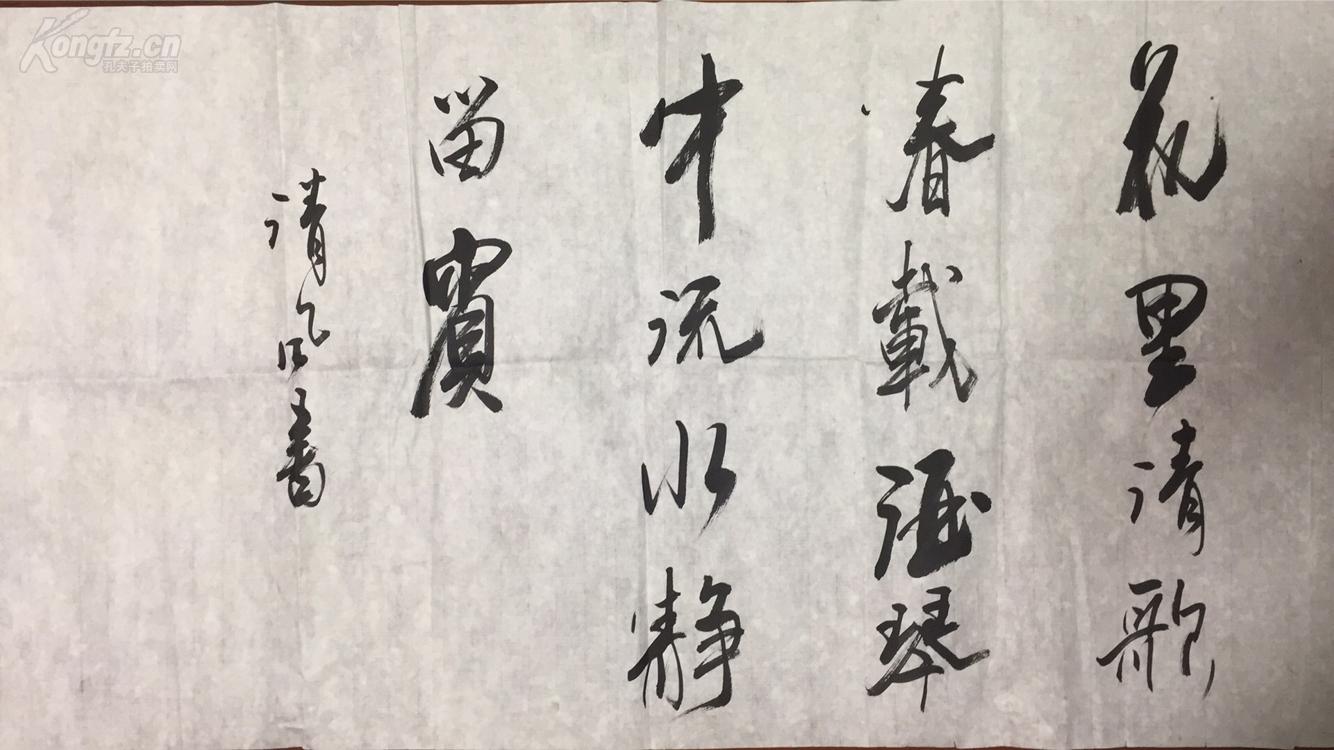 花里清歌
春載酒琴
中流水静
留賓
清風書
Kongfz.cn
孔夫子拍卖网